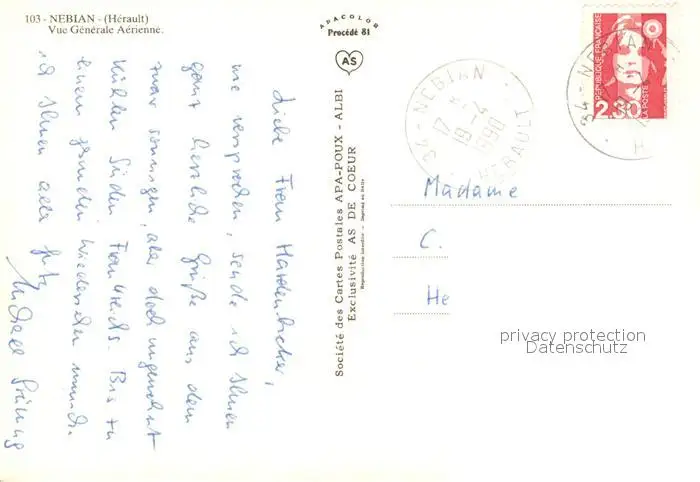 103 - NEBIAN - (Hérault)
Vue Générale Aérienne.
APACOLOR
Procédé 81
AS
Société des Cartes Postales APA-POUX - ALBI
Exclusivité AS DE COEUR
Reproduction interdite - Imprimé en Italie
Liebe Frau Hardenbicker,
wie versprochen, sende ich Ihnen
ganz herzliche Grüße aus dem
zwar sonnigen, aber doch ungewohnt
kühlen Süden Frankreichs. Bis zu
einem gesunden Wiedersehen wünsche
ich Ihnen alles Gute
Michael
34 - NEBIAN
HERAULT
17 H
19-4
1990
REPUBLIQUE FRANÇAISE
2,30
LA POSTE
Madame
C.
He
privacy protection
Datenschutz